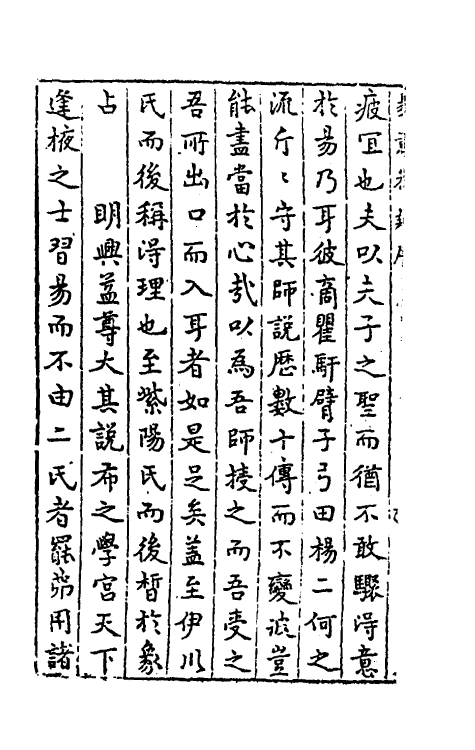 疲冝也夫以夫子之聖而猶不敢驟得意
於易乃耳彼商瞿馯臂子弓田楊二何之
流斤〻守其師説歷數十傳而不變彼豈
能盡當於心㦲以為吾師授之而吾受之
吾所出口而入耳者如是足矣蓋至伊川
氏而後稱得理也至紫陽氏而後晳於象
占　　明興益尊大其説布之學宮天下
逢掖之士習易而不由二氏者罷弗用諸